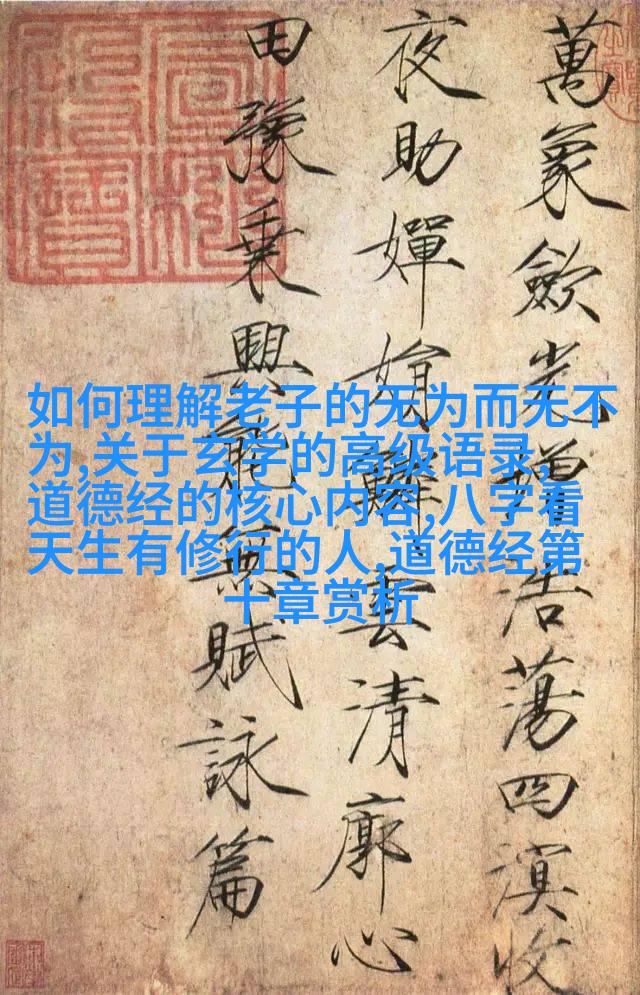 萬象歛光增浩蕩四溟收
夜助嬋娟鱗雲清廓心
田豫乗興能無賦詠篇
如何理解老子的无为而无不
为,关于玄学的高级语录,
道德经的核心内容,八字看
天生有修行的人,道德经第
十章赏析